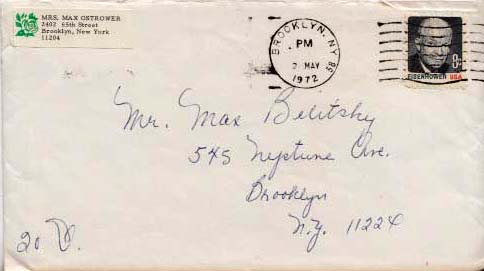 MRS. MAX OSTROWER
2402 65th Street
Brooklyn, New York
11204
BROOKLYN, NY
PM
2 MAY
1972
8¢
EISENHOWER USA
Mr. Max Belitsky
545 Neptune Ave.
Brooklyn
N.Y. 11224
20